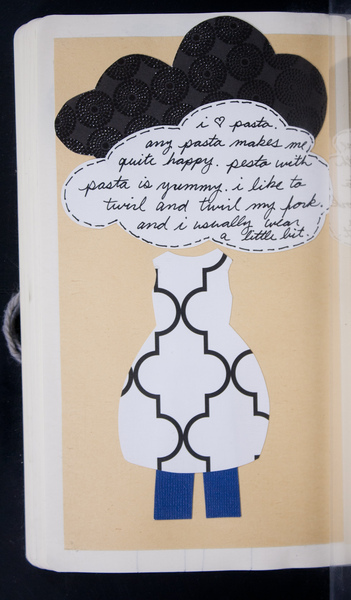 i ♡ pasta.
any pasta makes me
quite happy. pesta with
pasta is yummy. i like to
twirl and twirl my fork.
and i usually wear
a little bit.